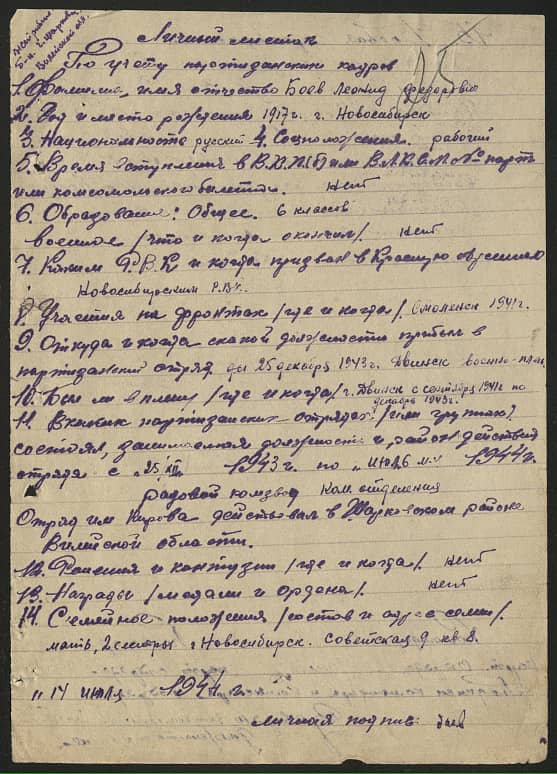 Личный листок
По учету партизанских кадров
1. Фамилия, имя отчество Боев Леонид Федорович
2. Год и место рождения 1917 г. г. Новосибирск
3. Национальность русский 4. Соцположения. рабочий
5. Время вступления в В.К.П.(б) или В.Л.К.С.М. № парт
или комсомольского билета. нет
6. Образование: Общее. 6 классов
военное /что и когда окончил/ нет
7. Каким Р.В.К и когда призван в Красную
Новосибирским Р.В.К.
8. Участия на фронтах /где и когда/. Смоленск 1941 г.
9. Откуда и когда с какой должности прибыл в
партизанский отряд до 25 декабря 1943 г. Двинск военно-плен
10. Был ли в плену /где и когда/ г. Двинск с сентября 1941 г по
декабрь 1943 г.
11. В каких партизанских отрядах /или группах/
состоял, занимаемая должность и район действия
отряда с "25 XII 1943 г. по "июль м-ц 1944 г.
рядовой комзвод Ком. отделения
Отряд им Кирова действовал в Жарковском районе
Вилейской области.
12. Ранения и контузии /где и когда/. нет
13. Награды /медали и ордена/. нет
14. Семейное положения /состов и адрес семи/.
мать, 2 сестры г Новосибирск. Советская 9 кв 8.
"14 июля 1944 г.
личная подпис: Боев